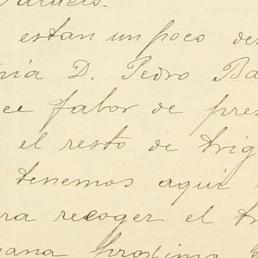 estan un poco des
D. Pedro Ba
ce fabor de pres
el resto de trig
tenemos aqui
ra recoger el tr
ana procsima